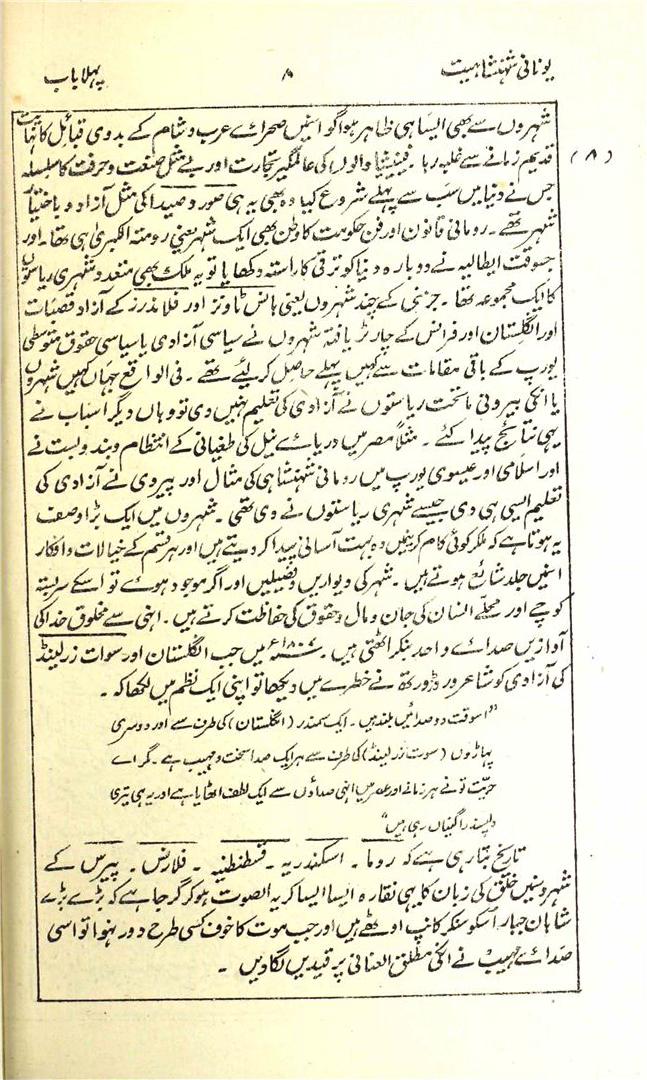 یونانی شہنشاہیت ۸ پہلا باب
شہروں سے بھی ایسا ہی ظاہر ہوا گو اِنمیں صحرائے عرب و شام کے بدوی قبائل کا نہایت
(۸) قدیم زمانے سے غلبہ رہا۔ فینیشیا والوں کی عالمگیر تجارت اور بے مثل صنعت و حرفت کا سلسلہ
جس نے دنیا میں سب سے پہلے شروع کیا وہ بھی یہ ہی صور و صیدا کی مثل آزاد و با ختیار
شہر تھے۔ رومانی قانون اور فن حکومت کا وطن بھی ایک شہر یعنی رومتہ الکبریٰ ہی تھا۔ اور
جسوقت ایطالیہ نے دوبارہ دنیا کو ترقی کا راستہ دکھایا تو یہ ملک بھی متعدد شہری ریاستوں
کا ایک مجموعہ تھا۔ جرمنی کے چند شہروں یعنی ہانس ٹاونز اور فلانڈرز کے آزاد قصبات
اور انگلستان اور فرانس کے چارٹر یافتہ شہروں نے سیاسی آزادی یا سیاسی حقوق متوسطی
یورپ کے باقی مقامات سے کہیں پہلے حاصل کرلیئے تھے۔ فی الواقع جہاں کہیں شہروں
یا انکی بیرونی ماتحت ریاستوں نے آزادی کی تعلیم نہیں دی تو وہاں دیگر اسباب نے
یہی نتائج پیدا کئے۔ مثلاً مصر میں دریائے نیل کی طغیانی کے انتظام و بندوبست نے
اور اسلامی اور عیسوی یورپ میں رومانی شہنشاہی کی مثال اور پیروی نے آزادی کی
تعلیم ایسی ہی دی جیسے شہری ریاستوں نے دی تھی۔ شہروں میں ایک بڑا وصف
یہ ہوتا ہے کہ ملکر کوئی کام کرنیمیں وہ بہت آسانی پیدا کر دیتے ہیں اور ہر قسم کے خیالات و افکار
انمیں جلد شائع ہوتے ہیں۔ شہر کی دیواریں و فصیلیں اور اگر موجود ہوئے تو اسکے سربستہ
کوچے اور محلّے انسان کی جان و مال و حقوق کی حفاظت کرتے ہیں۔ انہی سے مخلوق خدا کی
آوازیں صدائے واحد بنکر اٹھتی ہیں۔ ۱۸۰۷ء میں جب انگلستان اور سوات زرلینڈ
کی آزادی کو شاعر ورڈزورتھ نے خطرے میں دیکھا تو اپنی ایک نظم میں لکھا کہ۔
"اسوقت دو صدائیں بلند ہیں۔ ایک سمندر (انگلستان) کی طرف سے اور دوسری
پہاڑوں (سوت زرلینڈ) کی طرف سے ہر ایک صدا سخت و مہیب ہے۔ مگر اے
حریّت تو نے ہر زمانے اور عصر میں انہی صداؤں سے ایک لطف اٹھایا ہے اور یہ ہی تیری
دلپسند راگنیاں رہی ہیں"
تاریخ بتا رہی ہے کہ روما۔ اسکندریہ۔ قسطنطنیہ۔ فلارنس۔ پیرس کے
شہرونمیں خلق کی زبان کا یہی نقارہ ایسا ایسا کریہ الصوت ہو کر گرجا ہے کہ بڑے بڑے
شاہانِ جبار اُسکو سنکر کانپ اوٹھے ہیں اور جب موت کا خوف کسی طرح دور نہوا تو اسی
صدائے مہیب نے انکی مطلق العنانی پر قیدیں لگا دیں۔